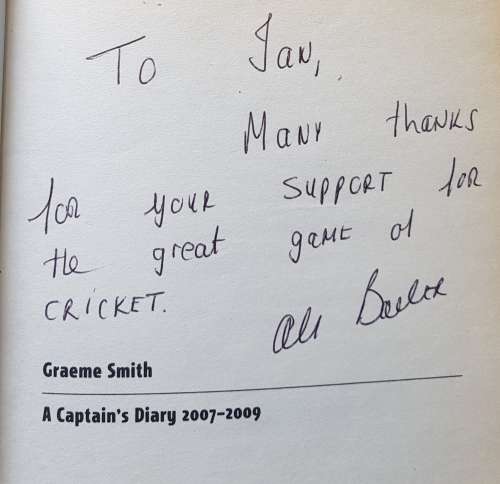 To Ian,
Many thanks
for your support for
the great game of
CRICKET.
Ali Bacher
Graeme Smith
A Captain's Diary 2007–2009